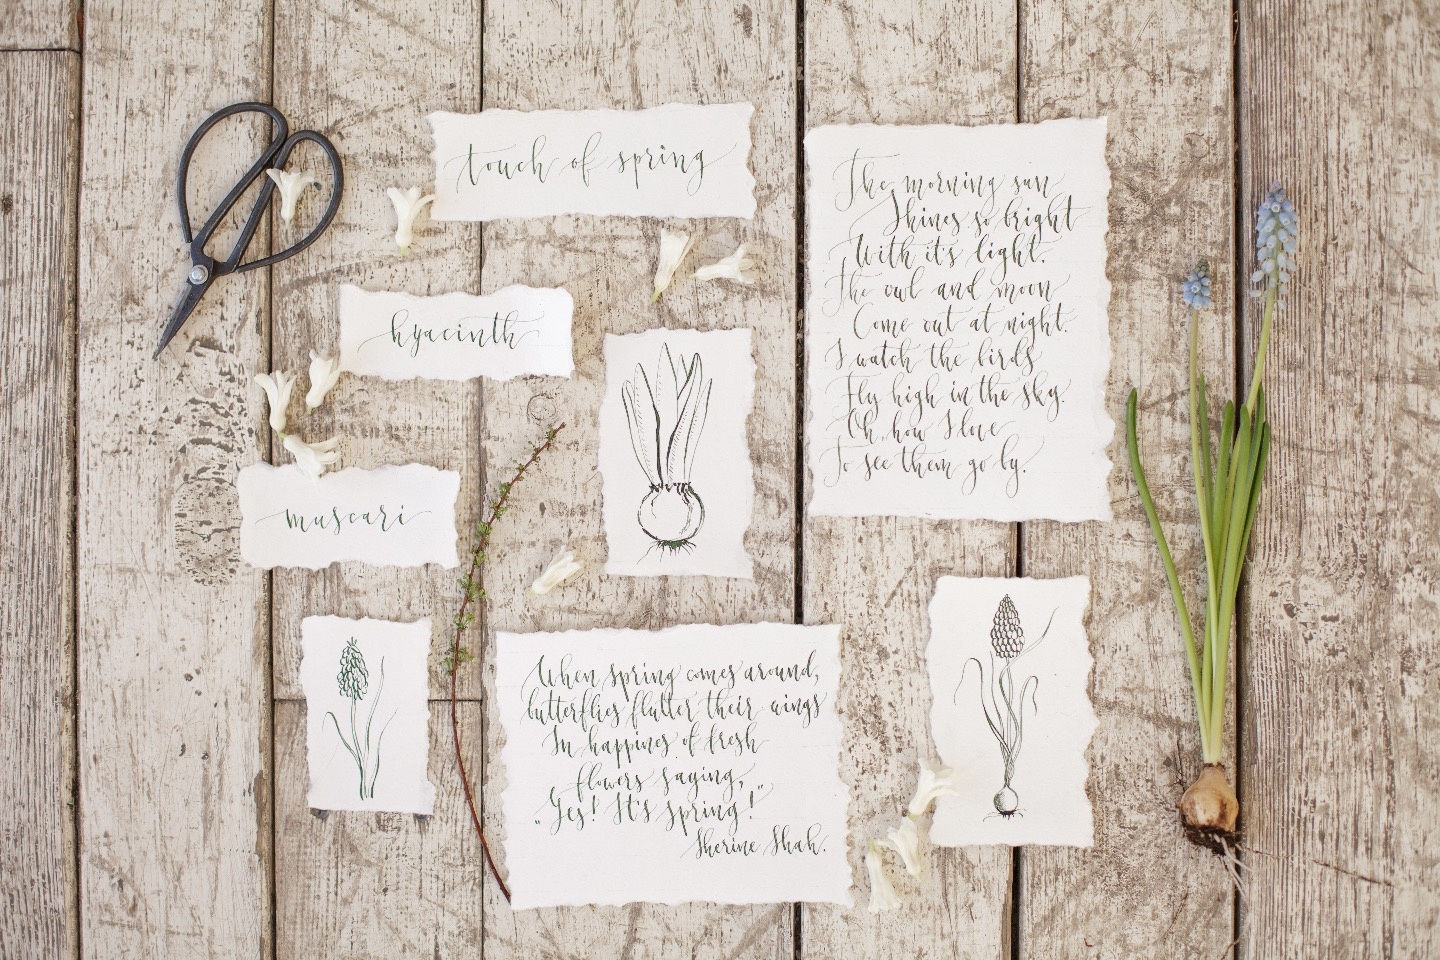 touch of spring
hyacinth
muscari
The morning sun
Shines so bright
With it's light.
The owl and moon
Come out at night.
I watch the birds
Fly high in the sky.
Oh, how I love
To see them go by.
When spring comes around,
butterflies flutter their wings
In happines of fresh
flowers saying,
„Yes! It's spring!"
Sherine Shah.